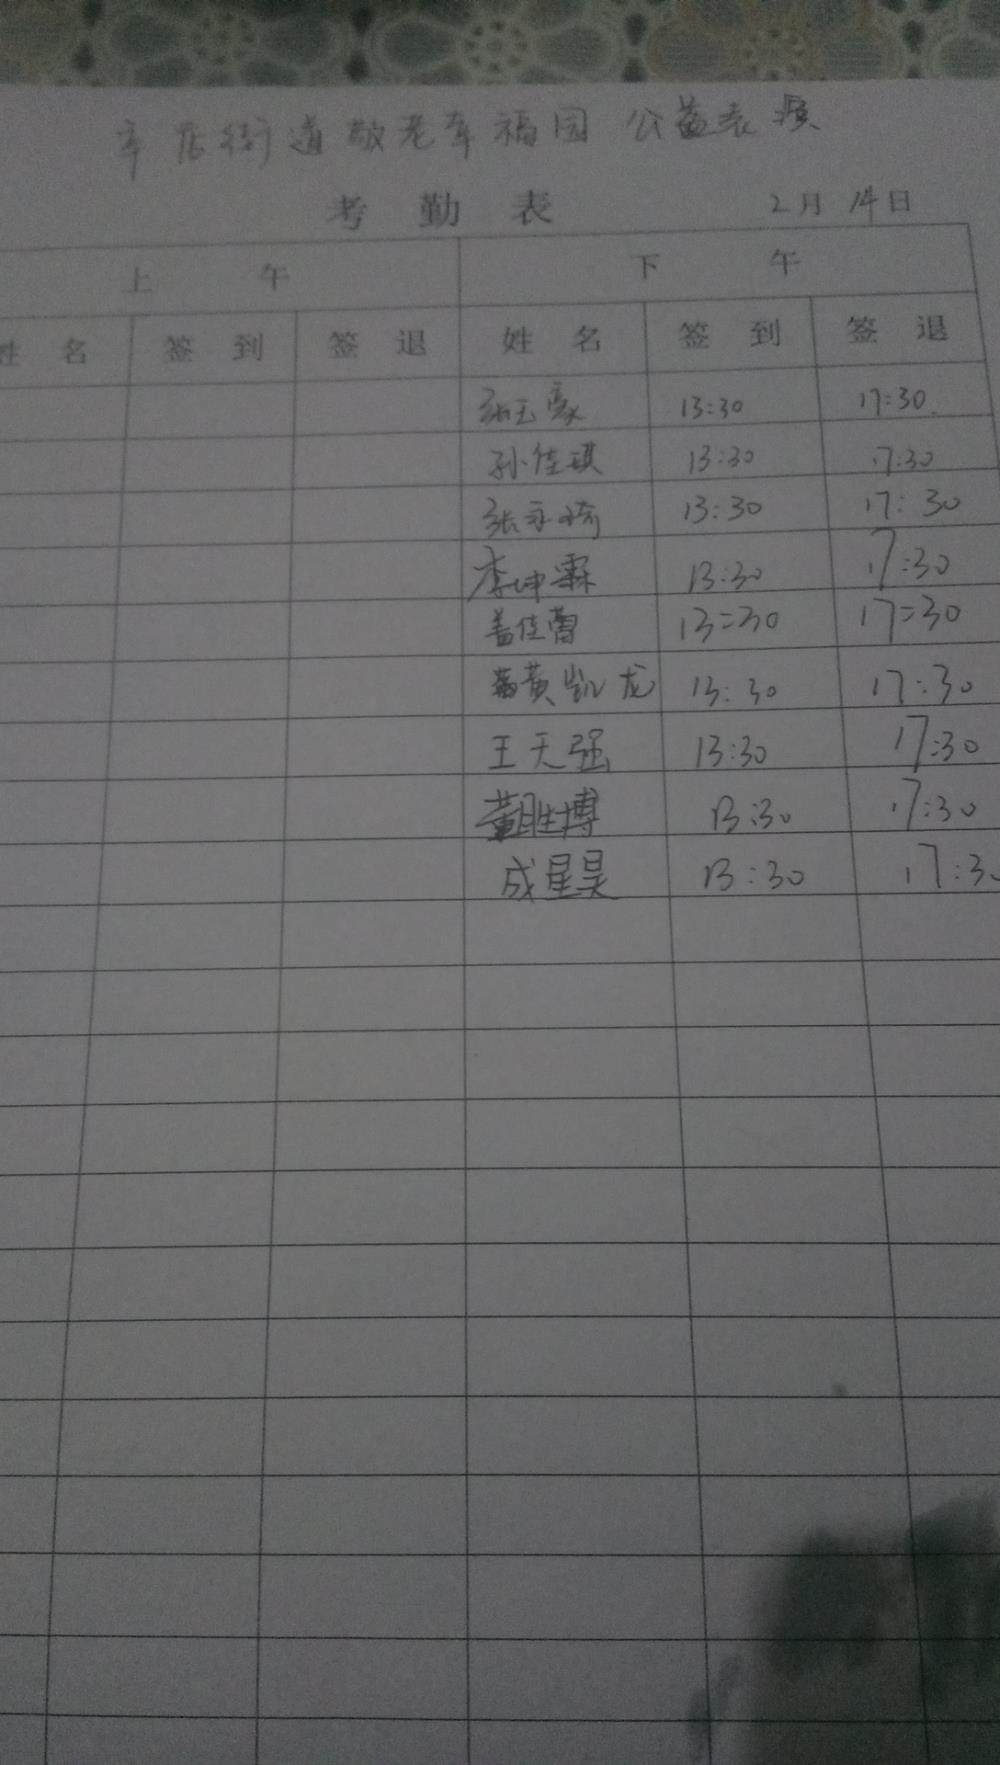 辛店街道敬老幸福园 公益表演
考 勤 表 2月 14日
上 午 下 午
姓 名 签 到 签 退 姓 名 签 到 签 退
张玉豪 13:30 17:30
孙佳琪 13:30 17:30
张永 13:30 17:30
李坤霖 13:30 17:30
盖佳蕾 13=30 17=30
黄凯龙 13:30 17:30
王天强 13:30 17:30
黄胜博 13:30 17:30
成星昊 13:30 17:30